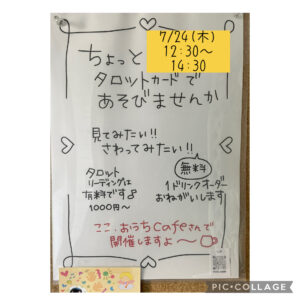 7/24(木)
12:30～
14:30
ちょっと
タロットカードで
あそびませんか
見てみたい!!
さわってみたい!!
無料
タロット
リーディングは
有料です
1000円～
1ドリンクオーダー
おねがいします
ここ、おうちCafeさんで
開催しますよ～
PIC・COLLAGE